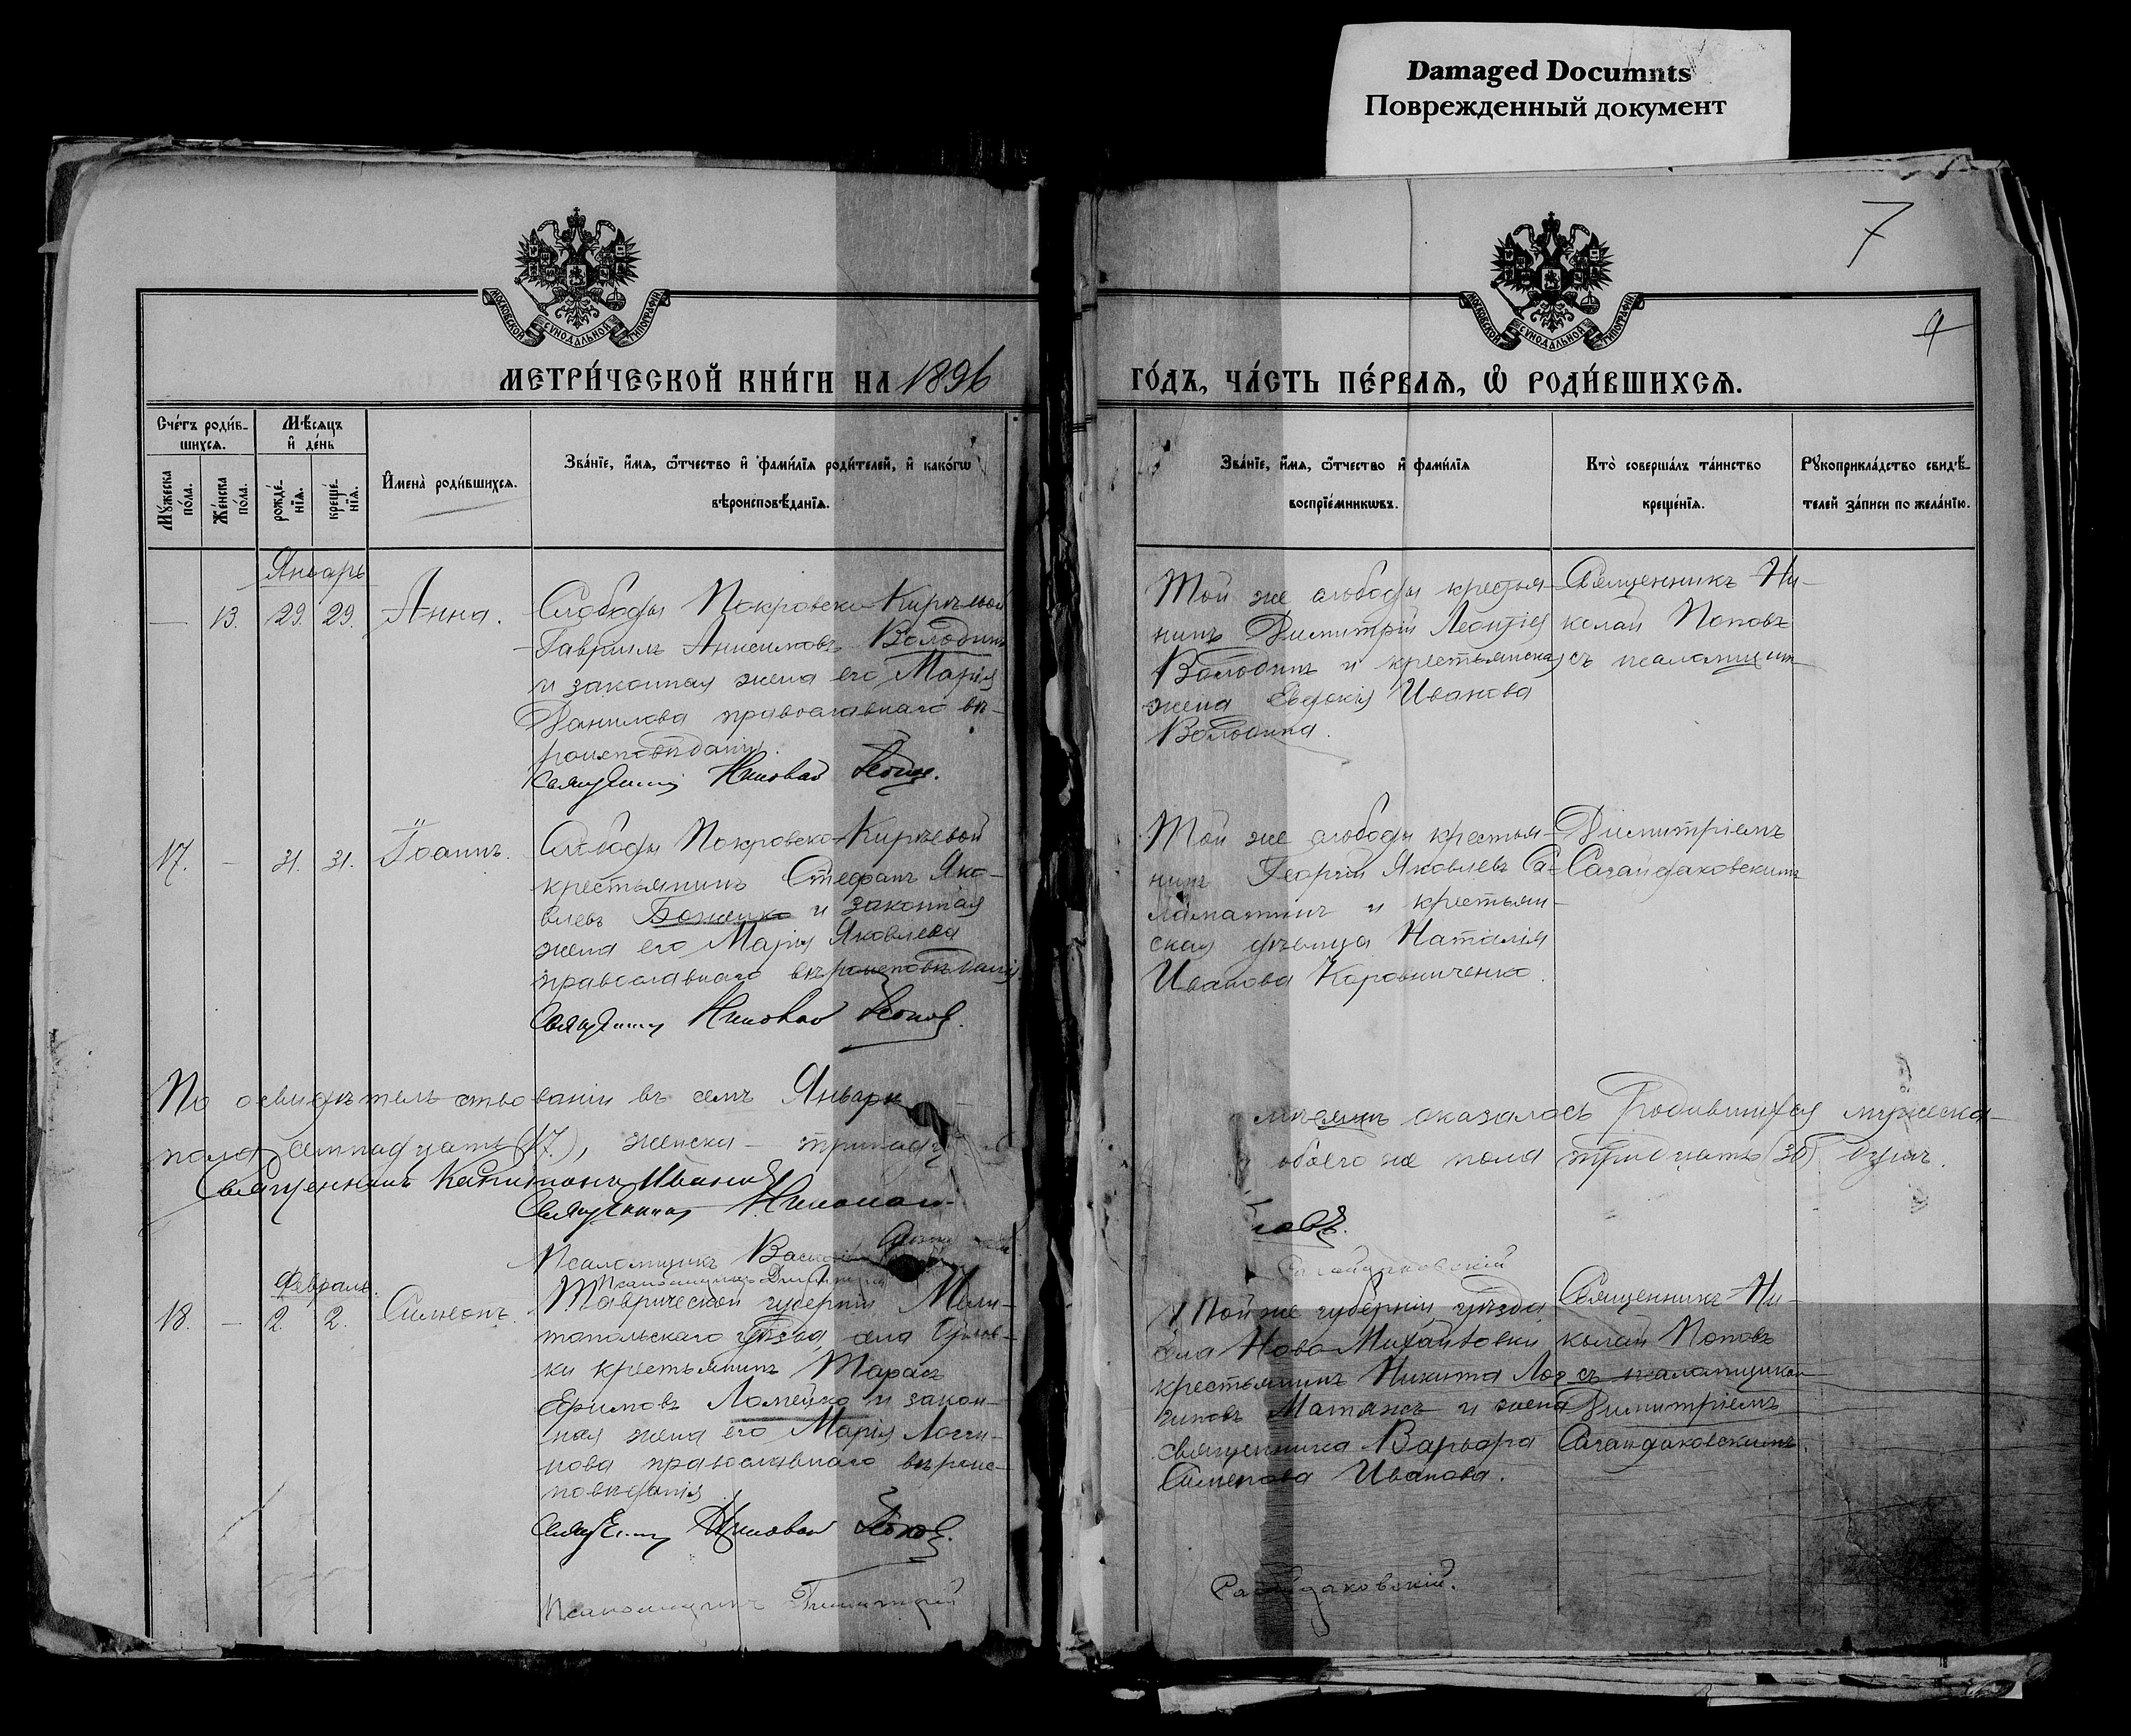 Damaged Documnts
Поврежденный документ
7
9
МОСКОВСКОЙ СУНОДАЛЬНОЙ ТИПОГРАФІИ
МОСКОВСКОЙ СУНОДАЛЬНОЙ ТИПОГРАФІИ
МЕТРИ́ЧЕСКОЙ КНИ́ГИ НА 1896
ГО́ДЪ, ЧА́СТЬ ПЕ́РВАЯ, Ѽ РОДИ́ВШИХСЯ.
Сче́тъ роди́в-
шихся.
Мꙋжеска по́ла.
Же́нска по́ла.
Мѣ́сяцъ
и҆ де́нь
рожде́нїя.
креще́нїя.
И҆мена̀ роди́вшихся.
Зва́нїе, и҆́мя, ѻ҆́тчество и҆ фамі́лїя роди́телей, и҆ како́гѡ
вѣроисповѣ́данїя.
Зва́нїе, и҆́мя, ѻ҆́тчество и҆ фамі́лїя
воспрїе́мникѡвъ.
Кто̀ соверша́лъ та́инство
креще́нїя.
Рꙋкоприкла́дство свидѣ́-
телей за́писи по жела́нїю.
Январь
— 13. 29. 29. Анна.
Слободы Покровско-Киръевой
Гавріилъ Анисимовъ Володинъ
и законная жена его Марія
Данилова православнаго вѣ-
роисповѣданія.
Священникъ Николай Попов.
Той же слободы крестья-
нинъ Димитрій Леонтіев
Володинъ и крестьянская
жена Евдокія Иванова
Володина.
Священникъ Ни-
колай Поповъ
съ псаломщик
17. — 31. 31. Іоаннъ.
Слободы Покровско-Киръевой
крестьянинъ Стефанъ Яко-
влевъ и законная
жена его Марія Яковлева
православнаго вѣроисповѣданія
Священникъ Николай Попов.
Той же слободы крестья-
нинъ Георгій Яковлевъ Са-
ламатинъ и крестьян-
ская дѣвица Наталія
Иванова Коровниченко.
Димитріемъ
Сагайдаковскимъ
По освидѣтельствованіи въ семъ Январѣ
мѣсяцѣ оказалось родившихся мужеска
пола семнадцать (17.), женска — тринадц
обоего же пола тридцать (30) душъ.
Священникъ Капитонъ Иванов
Священникъ Николай
повъ.
Псаломщикъ Васил
Псаломщикъ Димитрій
Сагайдаковскій
Февраль.
18. — 2. 2. Симеонъ.
Таврической губерніи Мели-
топольскаго уѣзда, села
ки крестьянинъ Тарасъ
Ефимовъ Ломейко и закон-
ная жена его Марія Логги-
нова православнаго вѣроис-
повѣданія
Священникъ Николай Попов.
Той же губерніи уѣзда,
села Ново-Михайловки
крестьянинъ Никита Лог-
гиновъ и жена
священника Варвара
Симеонова Иванова.
Священникъ Ни-
колай Поповъ
съ псаломщикомъ
Димитріемъ
Сагайдаковскимъ.
Псаломщикъ Димитрій
Сагайдаковскій.